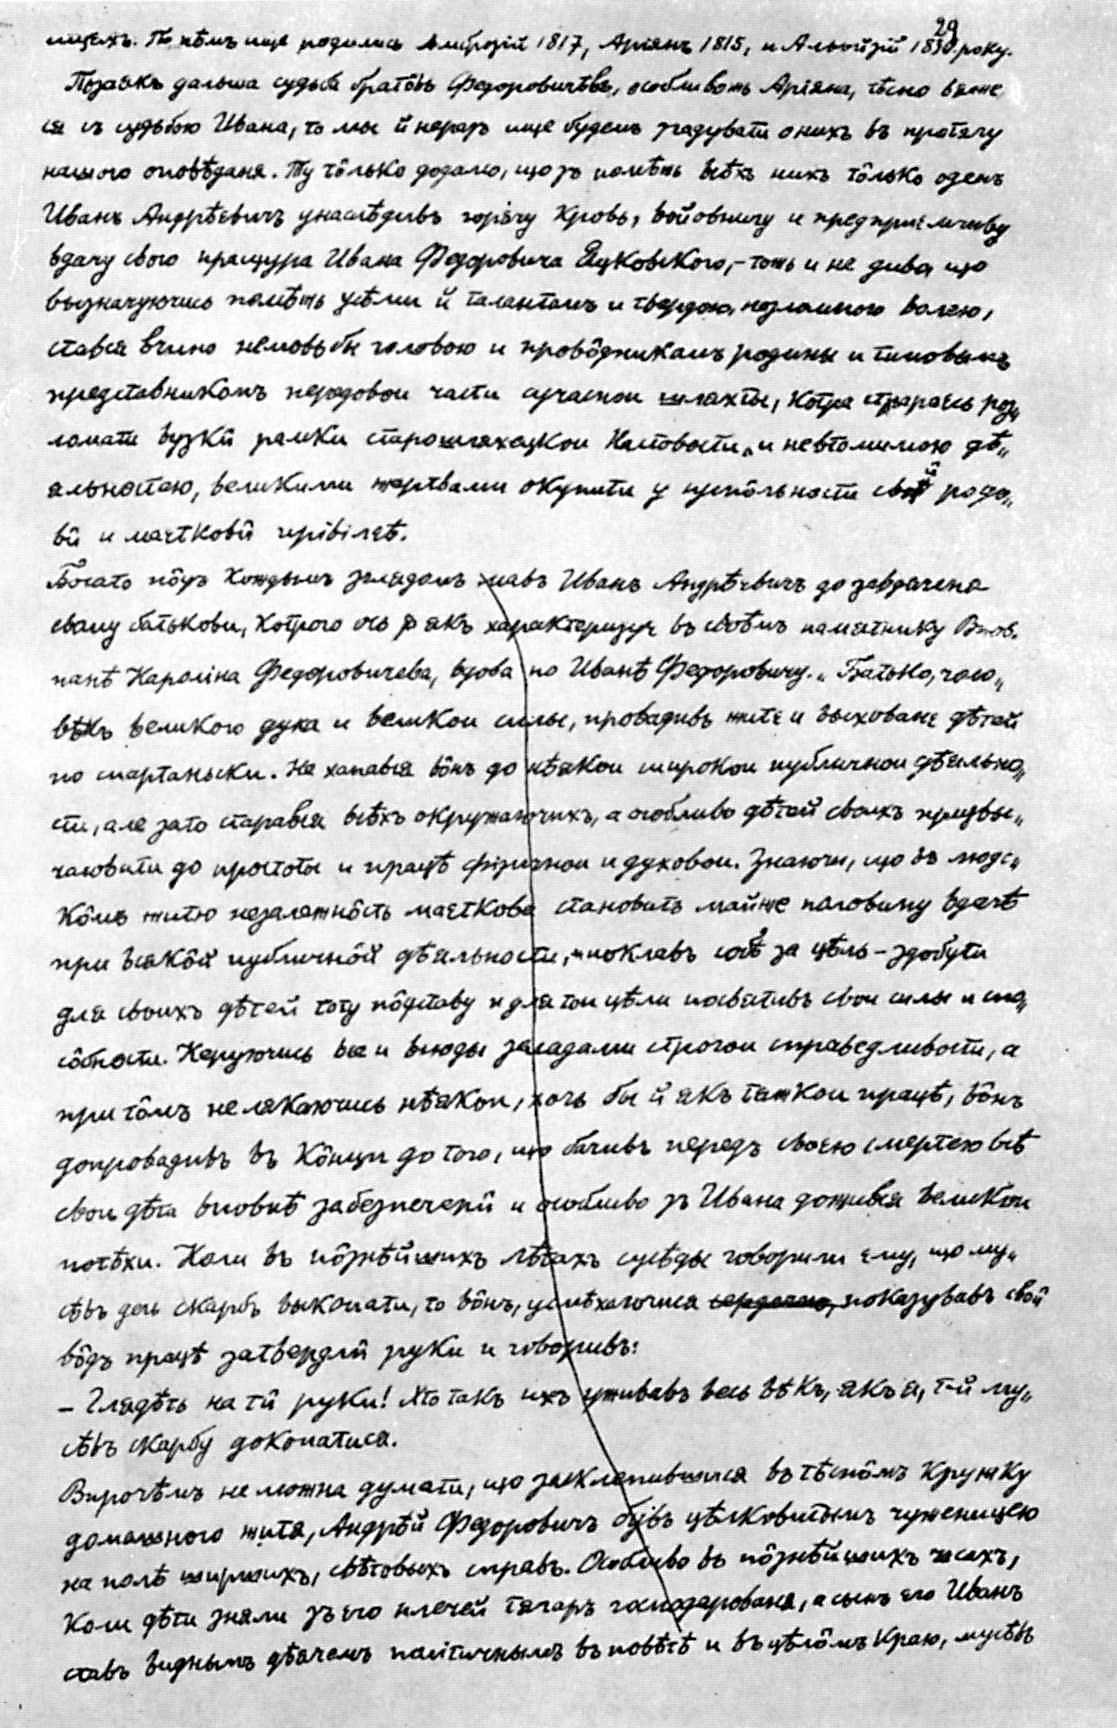 29
ищехъ. По нѣмъ ище родились Амброзій 1817, Аріянъ 1815, и Альойзій 1830 року.
Позаякъ дальша судьба братôвъ Федоровичѣвъ, особливожь Аріяна, тѣсно вяже
ся съ судьбою Ивана, то мы й неразъ ище будемъ згадувати о нихъ въ протягу
нашого оповѣданя. Ту тôлько додамо, що зъ помѣжь всѣхъ нихъ тôлько оденъ
Иванъ Андрѣевичъ унаслѣдивъ горячу кровь, войовничу и предприємчиву
вдачу свого пращура Ивана Федоровича Яцковского, – тожь и не диво, що
вызначуючись помѣжь усѣми й талантомъ и твердою, незломною волею,
ставъ вчино немовь бы головою и провôдникомъ родины и типовымъ
представникомъ передовои части сучаснои шляхты, котра стараєсь роз„
ломати вузкй рамки старошляхецкои кастовости, и невтомимою дѣ„
яльностею, великими жертвами окупити у суспôльности свой родо„
вй и маєтковй привілеѣ.
Богато пôдъ кождымъ зглядомъ мавъ Иванъ Андрѣевичъ до завдяченя
свому батькови, котрого ось якъ характеризує въ своѣмъ памятнику Впов.
панѣ Кароліна Федоровичева, вдова по Иванѣ Федоровичу. „Батько, чоло„
вѣкъ великого духа и великои силы, провадивъ житє и выхованє дѣтей
по спартаньски. Не хапався вôнъ до нѣякои широкои публичнои дѣяльно„
сти, але зато старався всѣхъ окружаючихъ, а особливо дѣтей своихъ призвы„
чаювати до простоты и працѣ фізичнои и духовои. Знаючи, що въ людс„
кôмъ житю незалежнôсть маєткова становить майже половину вдачѣ
при всякôй публичнôй дѣяльности, поклавъ собѣ за цѣль – здобути
для своихъ дѣтей тоту пôдставу и для тои цѣли посвятивъ свои силы и спо„
сôбности. Керуючись все и всюды засадами строгои справедливости, а
при тôмъ не лякаючись нѣякои, хочь бы й якъ тяжкои працѣ, вôнъ
допровадивъ въ кôнци до того, що бачивъ передъ своєю смертею всѣ
свои дѣти вповнѣ забезпеченй и особливо зъ Ивана дожився великои
потѣхи. Коли въ пôзнѣйшихъ лѣтахъ сусѣды говорили ему, що му„
сѣвъ десь скарбъ выкопати, то вôнъ, усмѣхаючися сердечно, показувавъ свой
вôдъ працѣ затвердлй руки и говоривъ:
– Глядѣть на тй руки! Хто такъ ихъ уживавъ весь вѣкъ, якъ я, той му„
сѣвъ скарбу докопатися.
Впрочѣмъ не можна думати, що засклепившися въ тѣснôмъ кружку
домашного житя, Андрѣй Федоровичъ бувъ цѣлковитымъ чуженицею
на полѣ ширшихъ, свѣтовыхъ справъ. Особливо въ пôзнѣйшихъ часахъ,
коли дѣти зняли зъ его плечей тягаръ господарованя, а сынъ его Иванъ
ставъ виднымъ дѣячемъ політичнымъ въ повѣтѣ и въ цѣлôмъ краю, мусѣвъ